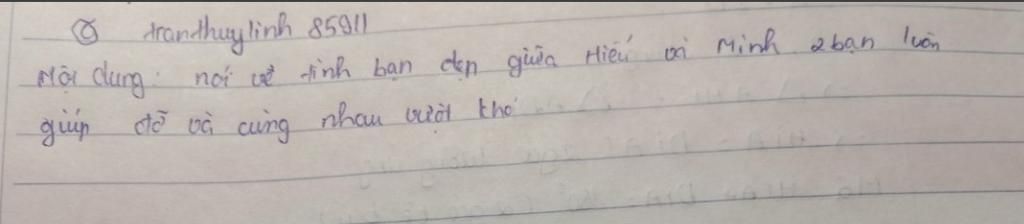 tranthuylinh 85911
Nội dung: nói về tình bạn đẹp giữa Hiếu và Minh 2 bạn luôn
giúp đỡ và cùng nhau vượt khó